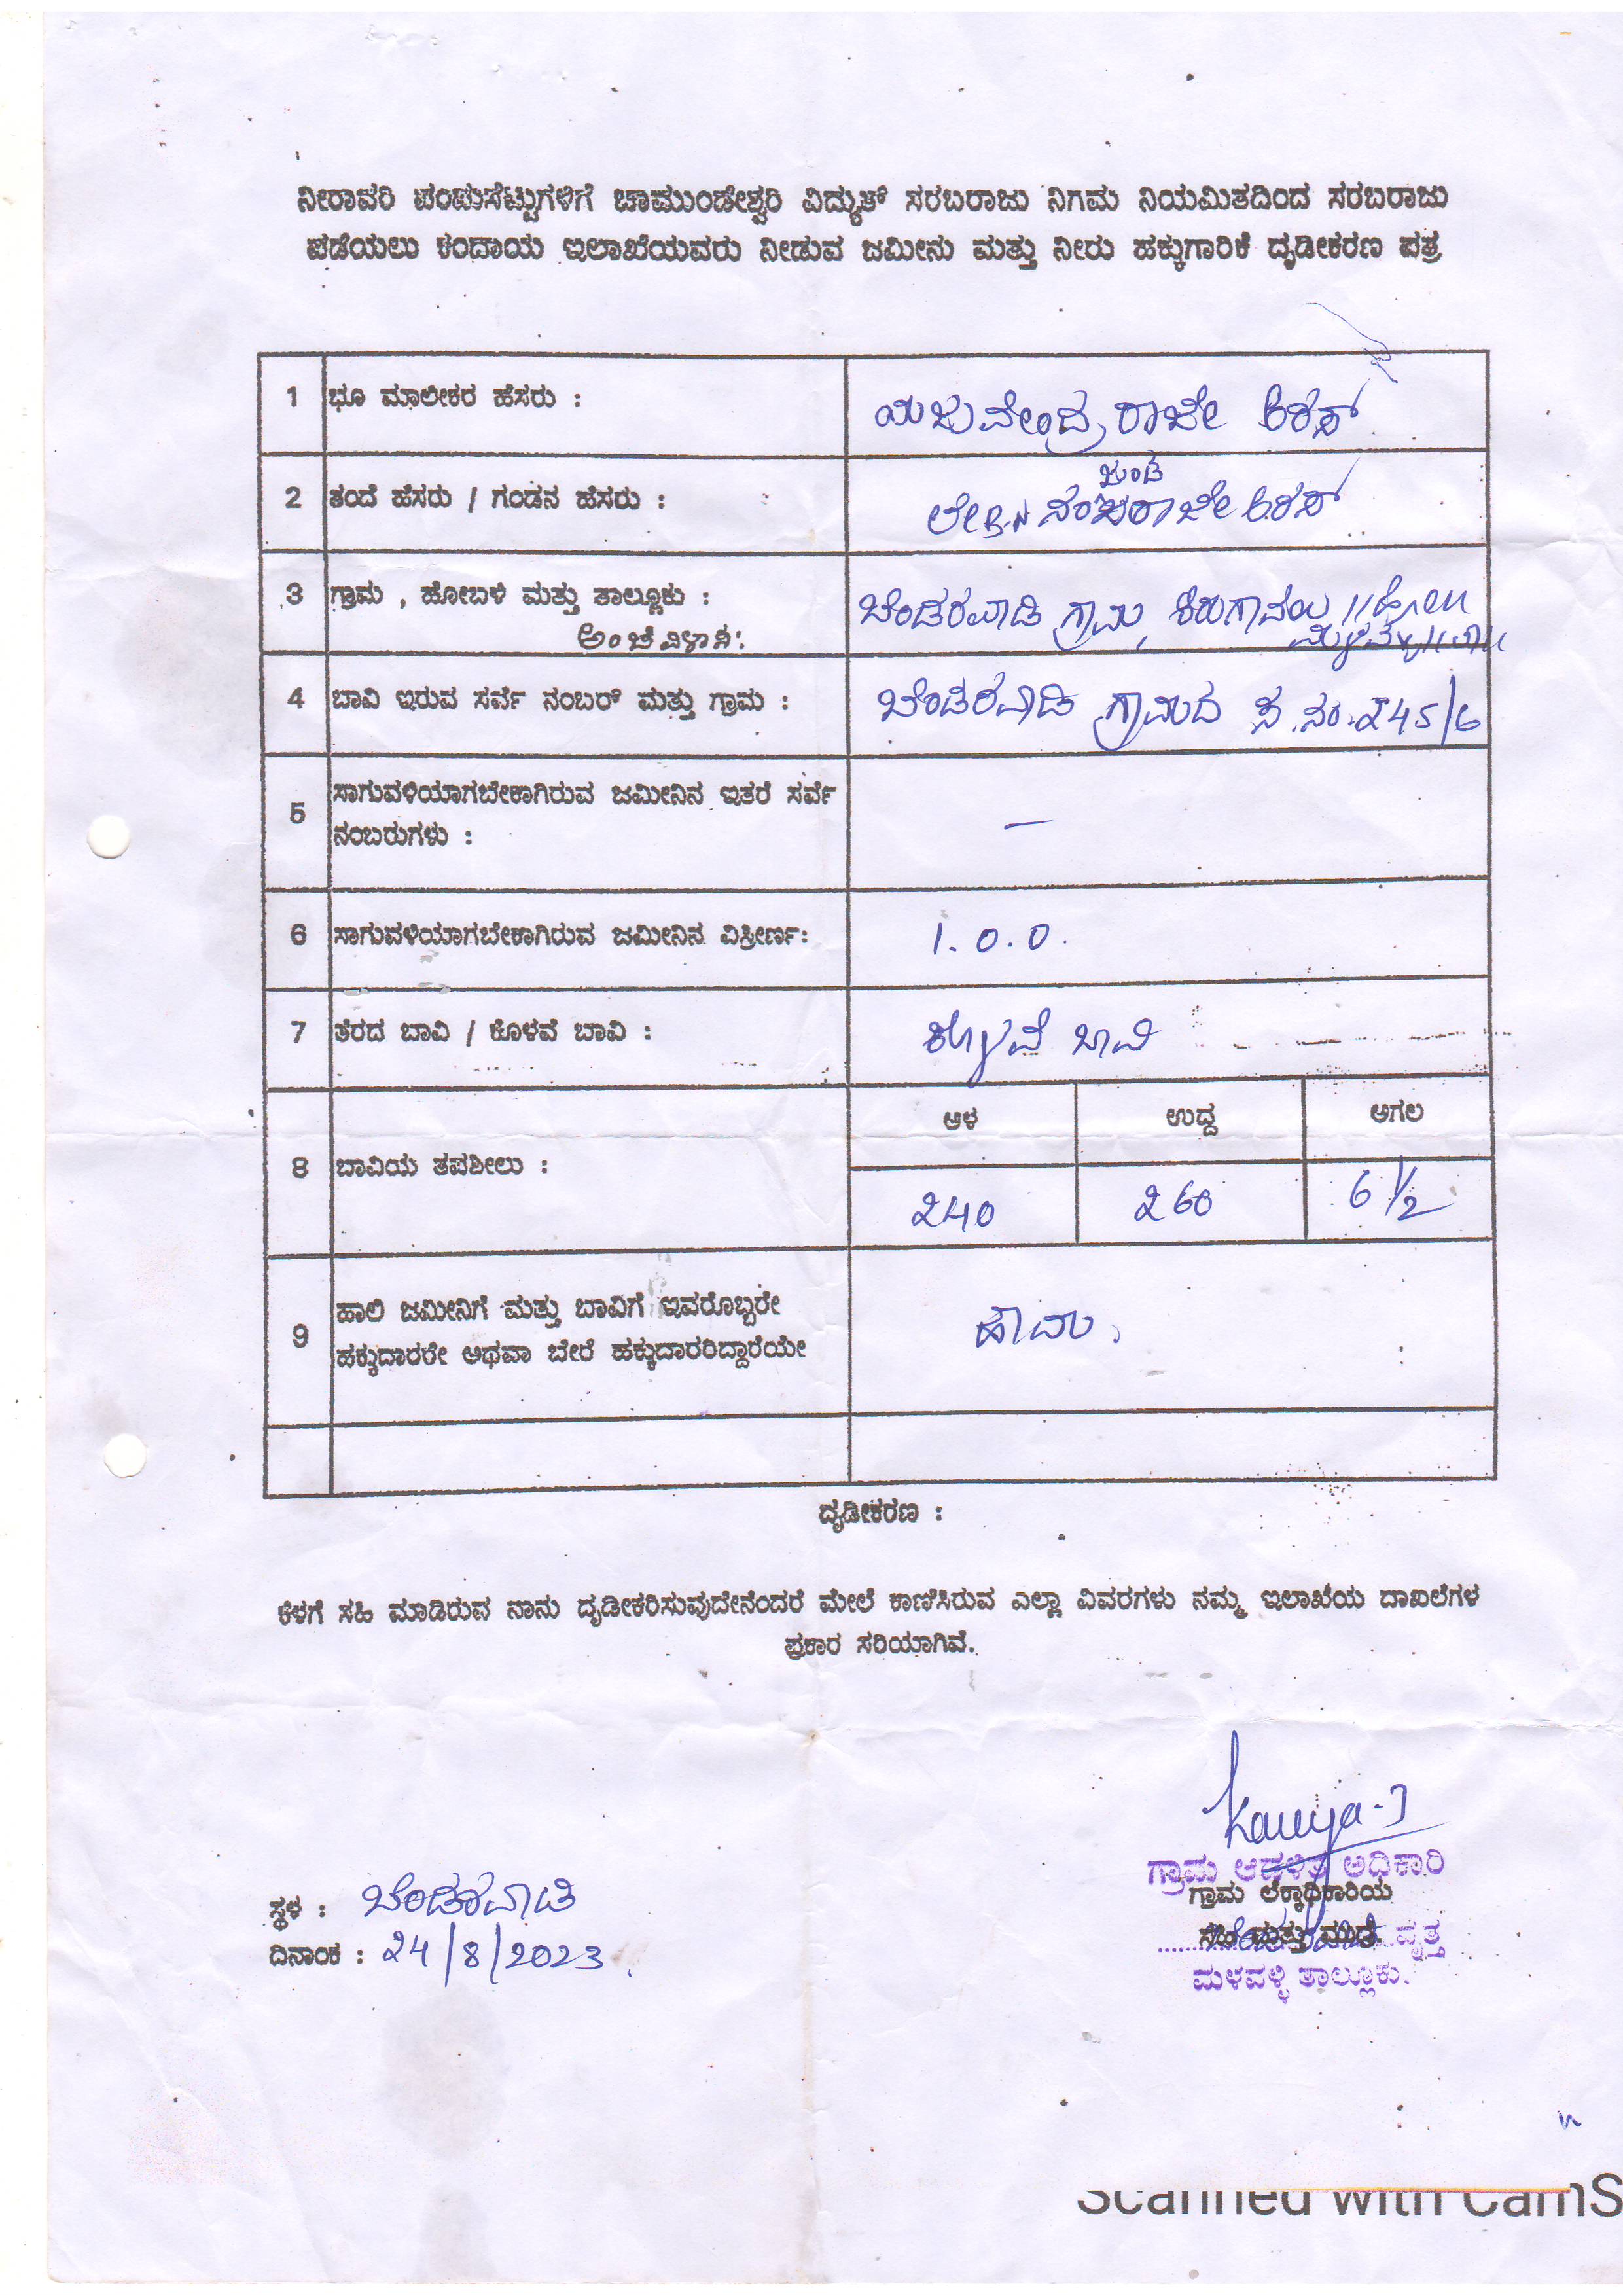 ನೀರಾವರಿ ಪಂಪುಸೆಟ್ಟುಗಳಿಗೆ ಚಾಮುಂಡೇಶ್ವರಿ ವಿದ್ಯುತ್ ಸರಬರಾಜು ನಿಗಮ ನಿಯಮಿತದಿಂದ ಸರಬರಾಜು
ಪಡೆಯಲು ಕಂದಾಯ ಇಲಾಖೆಯವರು ನೀಡುವ ಜಮೀನು ಮತ್ತು ನೀರು ಹಕ್ಕುಗಾರಿಕೆ ದೃಡೀಕರಣ ಪತ್ರ
1 ಭೂ ಮಾಲೀಕರ ಹೆಸರು : ರಾಜೇ ಅರಸ್
2 ತಂದೆ ಹೆಸರು / ಗಂಡನ ಹೆಸರು : ಲೇ B.N ರಾಜೇ ಅರಸ್
3 ಗ್ರಾಮ , ಹೋಬಳಿ ಮತ್ತು ತಾಲ್ಲೂಕು : ಬೆಂಡರವಾಡಿ ಗ್ರಾಮ, ಕಿರುಗಾವಲು //ಹೋ//
ಅಂಚೆ ವಿಳಾಸ:
4 ಬಾವಿ ಇರುವ ಸರ್ವೆ ನಂಬರ್ ಮತ್ತು ಗ್ರಾಮ : ಬೆಂಡರವಾಡಿ ಗ್ರಾಮದ ಸ.ನಂ. 245/6
5 ಸಾಗುವಳಿಯಾಗಬೇಕಾಗಿರುವ ಜಮೀನಿನ ಇತರೆ ಸರ್ವೆ
ನಂಬರುಗಳು : —
6 ಸಾಗುವಳಿಯಾಗಬೇಕಾಗಿರುವ ಜಮೀನಿನ ವಿಸ್ತೀರ್ಣ: 1. 0. 0.
7 ತೆರದ ಬಾವಿ / ಕೊಳವೆ ಬಾವಿ : ಕೊಳವೆ ಬಾವಿ
ಆಳ ಉದ್ದ ಅಗಲ
8 ಬಾವಿಯ ತಪಶೀಲು :
240 260 6 1/2
9 ಹಾಲಿ ಜಮೀನಿಗೆ ಮತ್ತು ಬಾವಿಗೆ ಇವರೊಬ್ಬರೇ
ಹಕ್ಕುದಾರರೇ ಅಥವಾ ಬೇರೆ ಹಕ್ಕುದಾರರಿದ್ದಾರೆಯೇ ಹೌದು.
ದೃಡೀಕರಣ :
ಕೆಳಗೆ ಸಹಿ ಮಾಡಿರುವ ನಾನು ದೃಡೀಕರಿಸುವುದೇನೆಂದರೆ ಮೇಲೆ ಕಾಣಿಸಿರುವ ಎಲ್ಲಾ ವಿವರಗಳು ನಮ್ಮ ಇಲಾಖೆಯ ದಾಖಲೆಗಳ
ಪ್ರಕಾರ ಸರಿಯಾಗಿವೆ.
ಗ್ರಾಮ ಆಡಳಿತ ಅಧಿಕಾರಿ
ಗ್ರಾಮ ಲೆಕ್ಕಾಧಿಕಾರಿಯ
ಸ್ಥಳ : ಬೆಂಡರವಾಡಿ
ಸಹಿ ಮತ್ತು ಮುದ್ರೆ ವೃತ್ತ
ದಿನಾಂಕ : 24/8/2023
ಮಳವಳ್ಳಿ ತಾಲ್ಲೂಕು.
Scanned with CamS